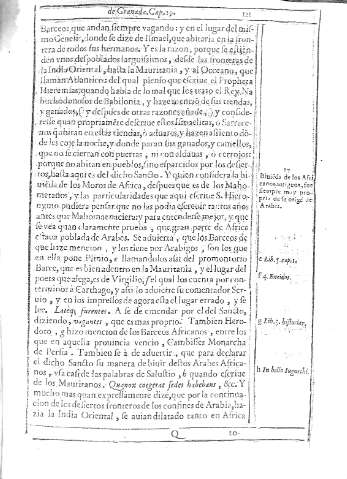 de Granada. Cap. 13. 121
Barceos que andan siempre vagando: y en el lugar del mis-
mo Genesis, donde se dize de Ismael, que abitaria en la fron-
tera de todos sus hermanos. Y es la razon, porque se estien-
den unos despoblados larguissimos, desde las fronteras de
la India Oriental, hasta la Mauritania, y al Oceano, que
llaman Atlantico: del qual pienso que escrive el Propheta
Hieremias, quando habla de lo mal que los trato el Rey Na-
buchodonosor de Babilonia, y haze mencion de sus tiendas,
y ganados, (y despues de otras razones añade,) y conside-
rese quan propriamente describe estos Ismaelitas, o Sarrace-
nos
de los coge la noche, y donde paran sus ganados, y camellos,
que no se cierran con puertas, ni con aldavas, o cerrojos:
porque no abitan en pueblos, sino esparcidos por los desier-
tos, hasta aqui es del dicho Sancto. Y quien considera la bi-
vienda de los Moros de Africa, despues que es de los Maho-
metanos, y las particularidades que aqui escrive S. Hiero-
nymo podria pensar que no las podia escrevir tantos años
antes que Mahoma naciera: y para entenderse mejor, y que
se vea quan claramente prueba, que gran parte de Africa
estava poblada de Arabes. Se advierta, que los Barceos de
que haze mencion, y los tiene por Arabigos, son los que
en ella pone Plinio, e llamandolos assi del promontorio
Barce, que es bien adentro en la Mauritania, y el lugar del
poeta que alega, es de Virgilio, f el qual los cuenta por con-
terminos a Carthago, y assi lo advierte su comentador Ser-
vio, y en los impressos de agora esta el lugar errado, y se
lee. Lateq; furentes. A se de emendar por el del Sancto,
diziendo, vagantes, que es mas proprio. Tambien Hero-
doto, g hizo mencion de los Barceos Africanos, entre los
que en aquella provincia vencio, Cambisses Monarcha
de Persia. Tambien se à de advertir, que para declarar
el dicho Sancto su manera de bivir destos Arabes Africa-
nos, usa casi de las palabras de Salustio, h quando escrive
de los Mauritanos. Quaque coegerat sedes habebant, &c. Y
mucho mas quan expressamente dize, que por la continua-
cion de los desiertos fronteros de los confines de Arabia, ha-
zia la India Oriental, se avian dilatado tanto en Africa
Q
Bivienda de los Afri-
canos antiguos, fue
siempre muy pro-
pria de la origẽ de
Arabia.
e Lib. 5. cap. 5.
f 4. Eneidos.
g Lib. 3. historiar.
h In bello Iugurth.